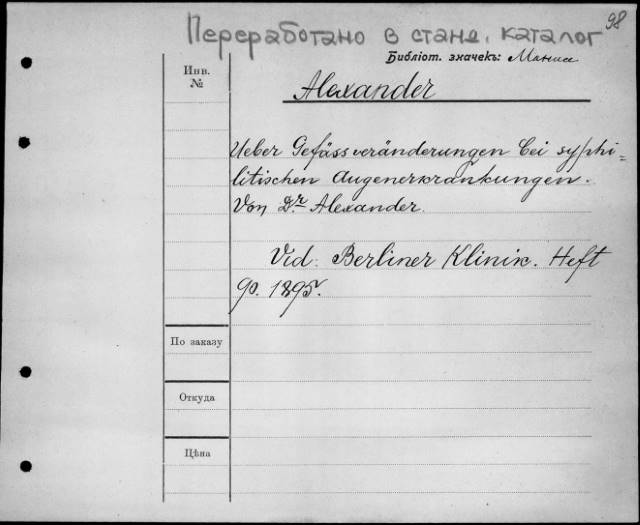 98
Переработано в станд. каталог
Библіот. значекъ:
Инв.
№
Alexander
Ueber Gefässveränderungen bei syphi=
litischen Augenerkrankungen.
Von Dr. Alexander.
Vid. Berliner Klinik. Heft
90. 1895.
По заказу
Откуда
Цѣна